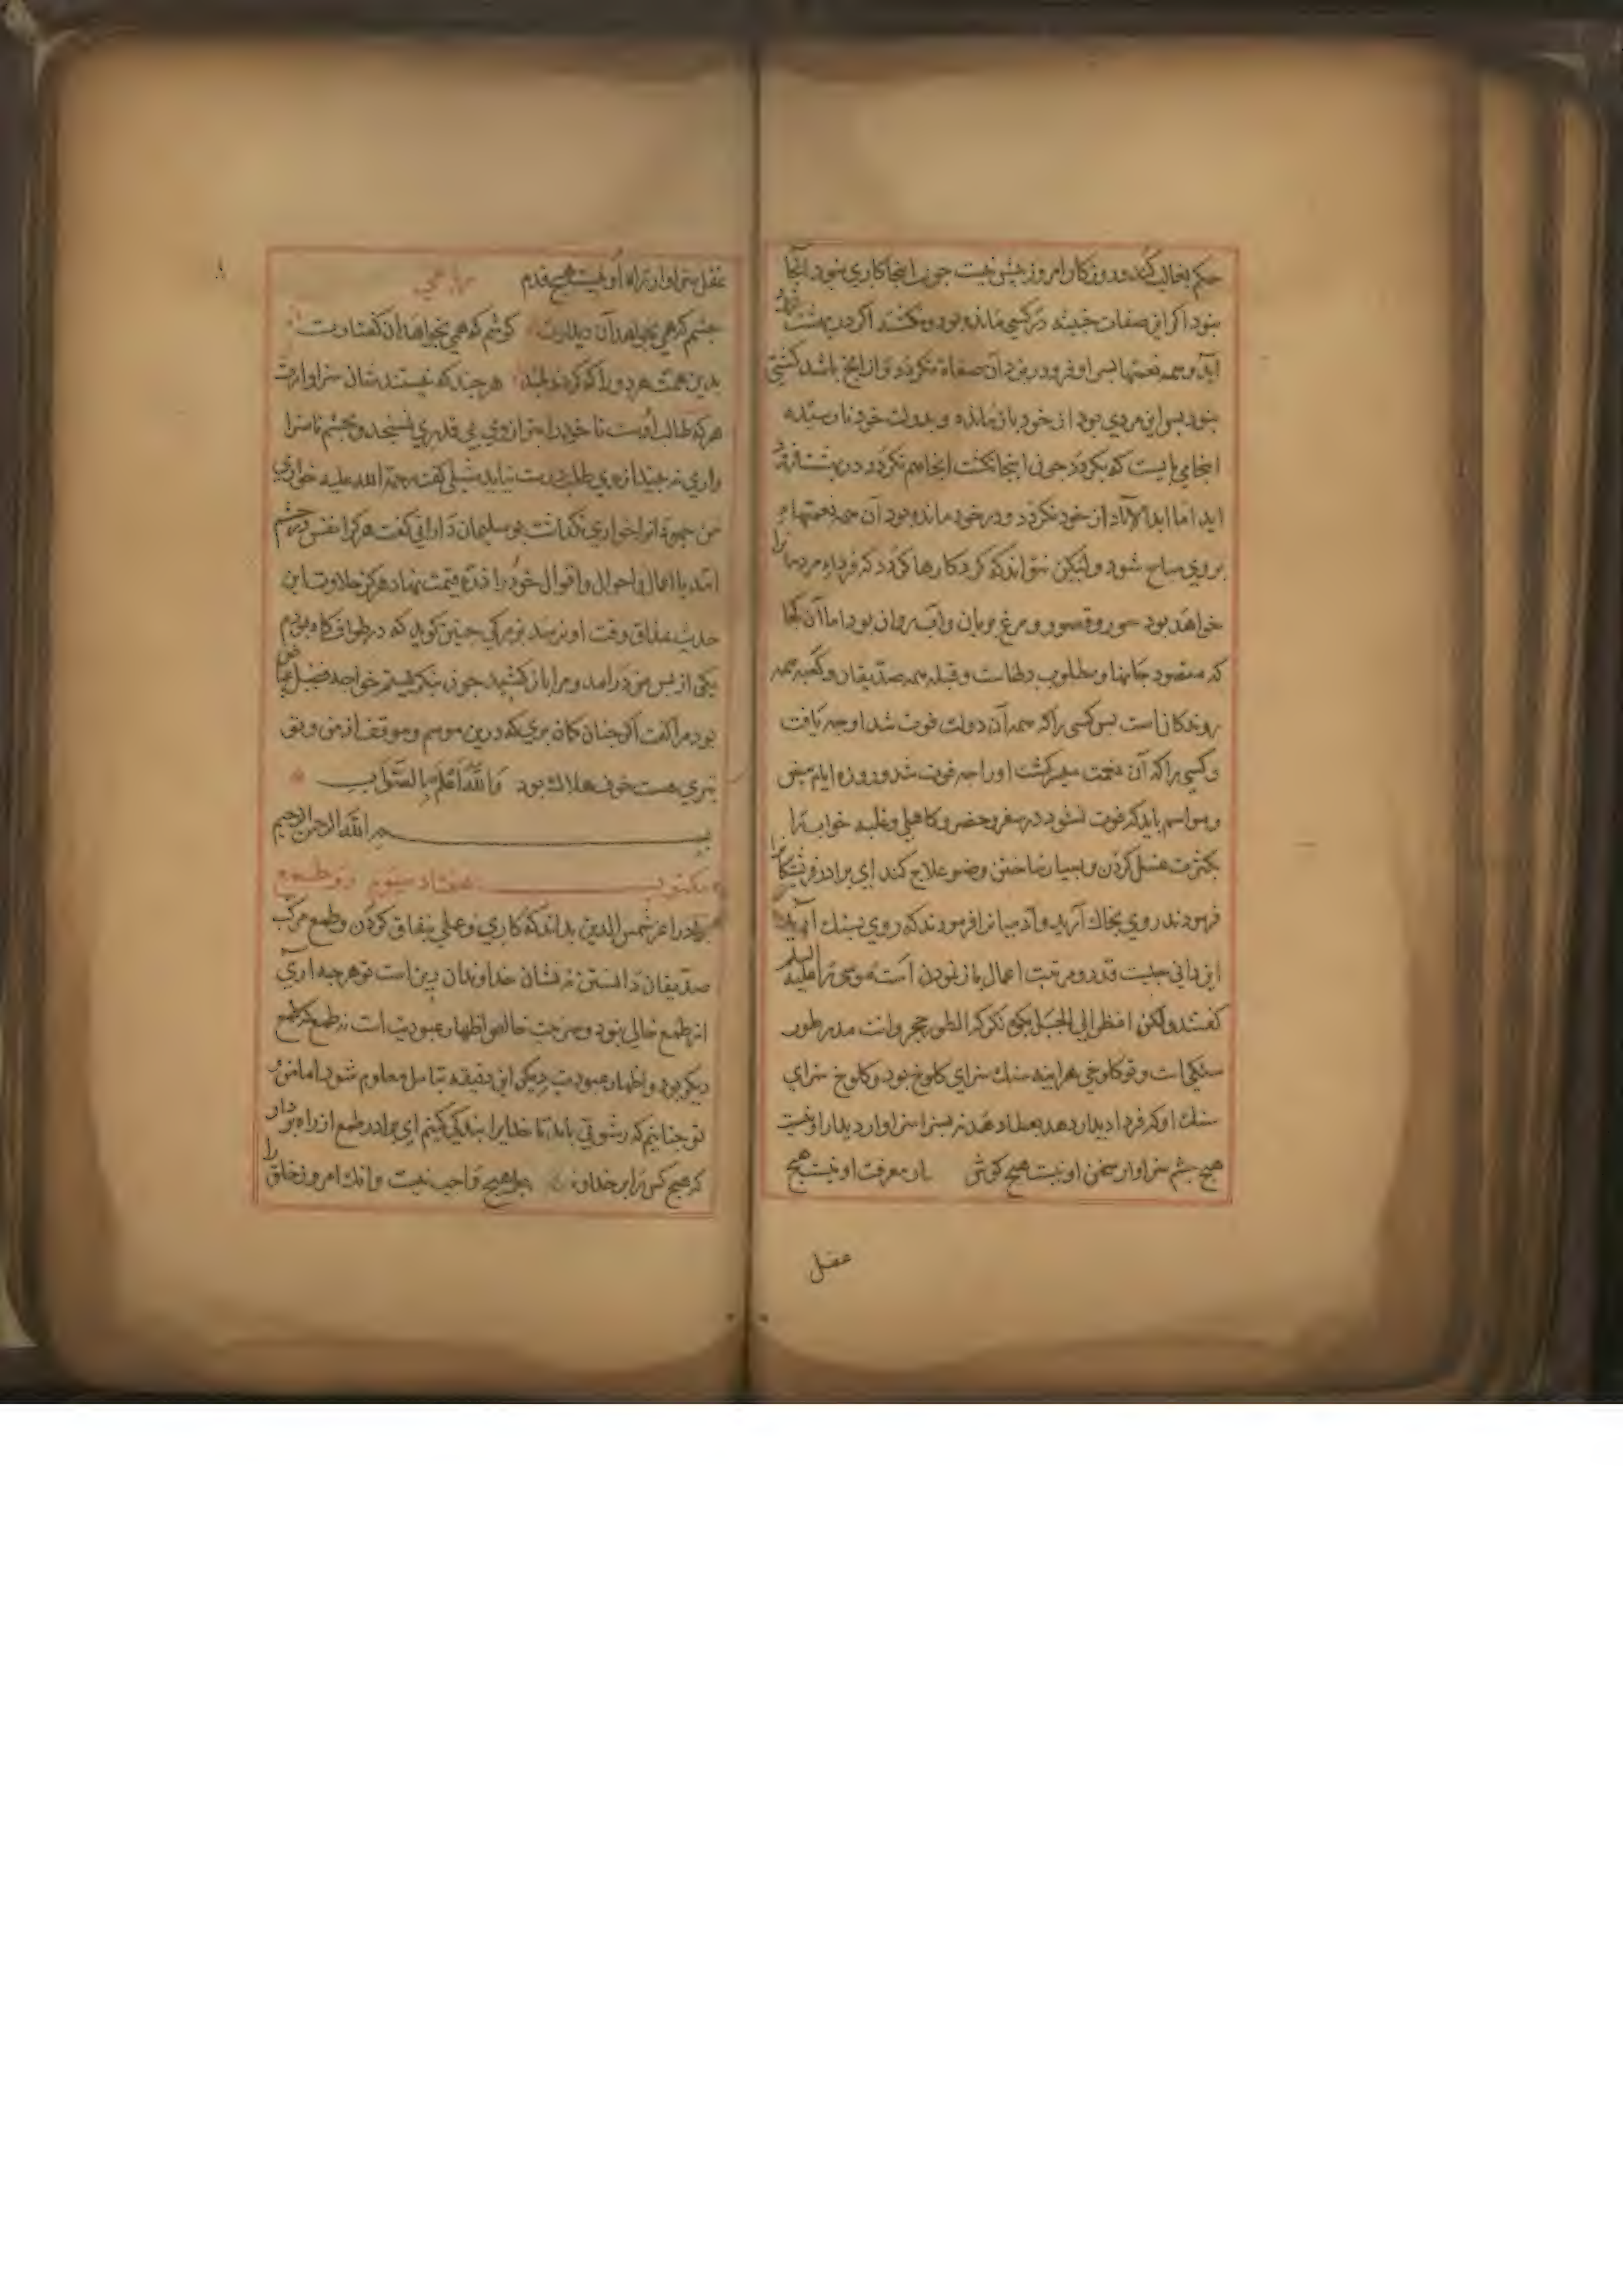 حکم بخالی کنند و روزکار امروز پیش نیست جون اینجا کاری نبود آنجا
نبود اکر این صفات خبیثه در کسی مانده بود و نکشته اکر در بهشت
آید و همه نعمتها بسر او فرود ریزند آن صفاة نکردد
نبود بس این مردی بود از خود باز مانده و بدولت خود نارسیده
اینجا می بایست که بکردد جون اینجا نکشت انجا هم نکردد و در بهشت
اید اما ابد الآباد از خود نکردد و در خود مانده بود آن همه نعمتها
بروی مباح شود ولیکن نتواند که کرد کارها کردد که فردا مردمان را
خواهد بود حور و قصور و مرغ بریان و آب روان بود اما آن کجا
که مقصود جانها و مطلوب دلهاست و قبله همه صدیقان و کعبه همه
روندکان است بس کسی را که همه آن دولت فوت شد او جه یافت
و کسی را که آن نعمت میسر کشت او را جه فوت شد و روزه ایام بیض
و مواسم باید که فوت نشود در سفر و حضر و کاهلی و غلبه خواب را
بکثرت غسل کردن و بسیار ساختن وضو علاج کند ای برادر
فرمودند روی بخاک آرید و آدمیانرا فرمودند که روی بسنک آرید
این دانی جیست قدر و مرتبت اعمال باز نمودن است موسی را علیه السلم
کفتند ولکن انظر الی الجبل بکوه نکر که الطور حجر وانت مدر طور
سنکی است و تو کلوخی هر اینه سنک سزای کلوخ بود و کلوخ سزای
سنک او که فردا دیدار دهد بعطا دهد نه بسزا سزاوار دیدار او نیست
هیج جشم سزاوار سخن او نیست هیج کوش معرفت او نیست هیج
عقل
عقل سزاوار راه او نیست هیج قدم
جشم که همی بخواهد آن دیدارت کوشم که همی بخواهد آن کفتارت
بدین همت هر دو را که کردند بلند هرجند که نیستند شان سزاوارت
هر که طالب اوست تا خود را جنزوی بی قدری نسنجد و بجشم ناسزا
واری نه بیند از وی طلب درست نیاید شبلی کفت رحمة الله علیه خواری
من جهودانرا خواری نکذاشت بو سلیمان دارانی کفت هر کرا نفس در جشم
آمد یا اعمال و احوال و اقوال خود را ذره قیمت نهاد هرکز حلاوت این
حدیث بمذاق وقت او نرسد بزرکی جنین کوید که در طواف کاه بودم
یکی از بس من در آمد و مرا باز کشید جون بنکریستم خواجه فضیل عیاض
بود مرا کفت اکر جنان کمان بری که درین موسم و موقف از من و تو
بتری هست خوف هلاک بود والله اعلم بالصواب
بسم الله الرحمن الرحیم
مکتوب هفتاد سیوم در طمع
برادر اعز شمس الدین بداند که کاری و عملی بنفاق کردن و طمع مرکب
صدیقان دانستن نه نشان خداوندان دین است تو هرجه آری
از طمع خالی نبود و جز جنت خالص اظهار عبودیت است نه طمع که طمع
دیکر بود و اظهار عبودیت دیکر این دقیقه بتامل معلوم شود اما من و
تو جنانیم که رشوتی باید تا خدایرا بندکی کنیم ای برادر طمع از راه بردار
که هیج کس را بر خداوند عز و جل هیج واجب نیست و انک امروز خلق را